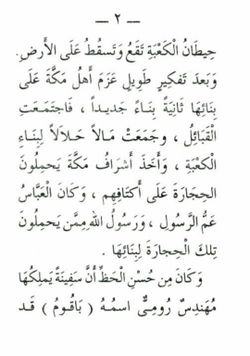 — ٢ —
حِيطَانُ الْكَعْبَةِ تَقَعُ وَتَسْقُطُ عَلَى الْأَرْضِ.
وَبَعْدَ تَفْكِيرٍ طَوِيلٍ عَزَمَ أَهْلُ مَكَّةَ عَلَى
بِنَائِهَا ثَانِيَةً بِنَاءً جَدِيداً ، فَاجْتَمَعَتِ
الْقَبَائِلُ ، وَجَمَعَتْ مَالاً حَلَالاً لِبِنَاءِ
الْكَعْبَةِ ، وَأَخَذَ أَشْرَافُ مَكَّةَ يَحْمِلُونَ
الْحِجَارَةَ عَلَى أَكْتَافِهِم ، وَكَانَ الْعَبَّاسُ
عَمُّ الرَّسُولِ ، وَرَسُولُ اللهِ مِمَّن يَحْمِلُونَ
تِلْكَ الْحِجَارَةَ لِبِنَائِهَا .
وَكَانَ مِن حُسْنِ الْحَظِّ أَنَّ سَفِينَةً يَمْلِكُهَا
مُهَنْدِسٌ رُومِىٌّ اسمُهُ ( بَاقُومُ ) قَد